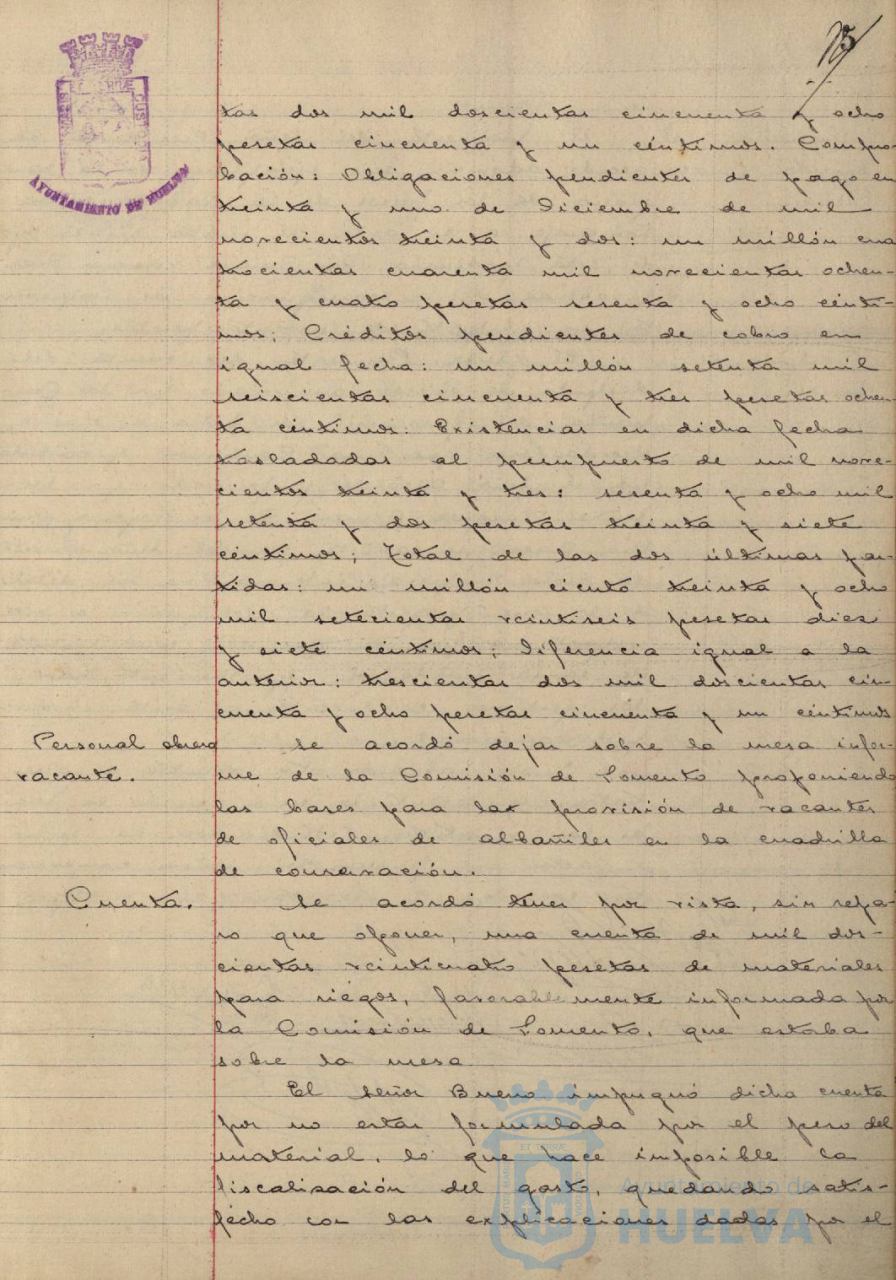 75
AYUNTAMIENTO DE HUELVA
tas dos mil doscientas cincuenta y ocho
pesetas cincuenta y un céntimos. Compro-
bación: Obligaciones pendientes de pago en
treinta y uno de Diciembre de mil
novecientos treinta y dos: un millón cua
trocientas cuarenta mil novecientas ochen-
ta y cuatro pesetas sesenta y ocho cénti-
mos; Créditos pendientes de cobro en
igual fecha: un millón setenta mil
seiscientas cincuenta y tres pesetas ochen
ta céntimos. Existencias en dicha fecha
trasladadas al presupuesto de mil nove-
cientos treinta y tres: sesenta y ocho mil
setenta y dos pesetas treinta y siete
céntimos; Total de las dos últimas par-
tidas: un millón ciento treinta y ocho
mil setecientas veintiseis pesetas diez
y siete céntimos; Diferencia igual a la
anterior: trescientas dos mil doscientas cin-
cuenta y ocho pesetas cincuenta y un céntimos
Personal obrero
vacante.
Se acordó dejar sobre la mesa infor-
me de la Comisión de Fomento proponiendo
las bases para la provisión de vacantes
de oficiales de albañiles en la cuadrilla
de conservación.
Cuenta.
Se acordó tener por vista, sin repa-
ro que oponer, una cuenta de mil dos-
cientas veinticuatro pesetas de materiales
para riegos, favorablemente informada por
la Comisión de Fomento, que estaba
sobre la mesa
El señor Bueno impugnó dicha cuenta
por no estar formulada por el peso del
material, lo que hace imposible la
fiscalización del gasto, quedando satis-
fecho con las explicaciones dadas por el
Ayuntamiento de
HUELVA